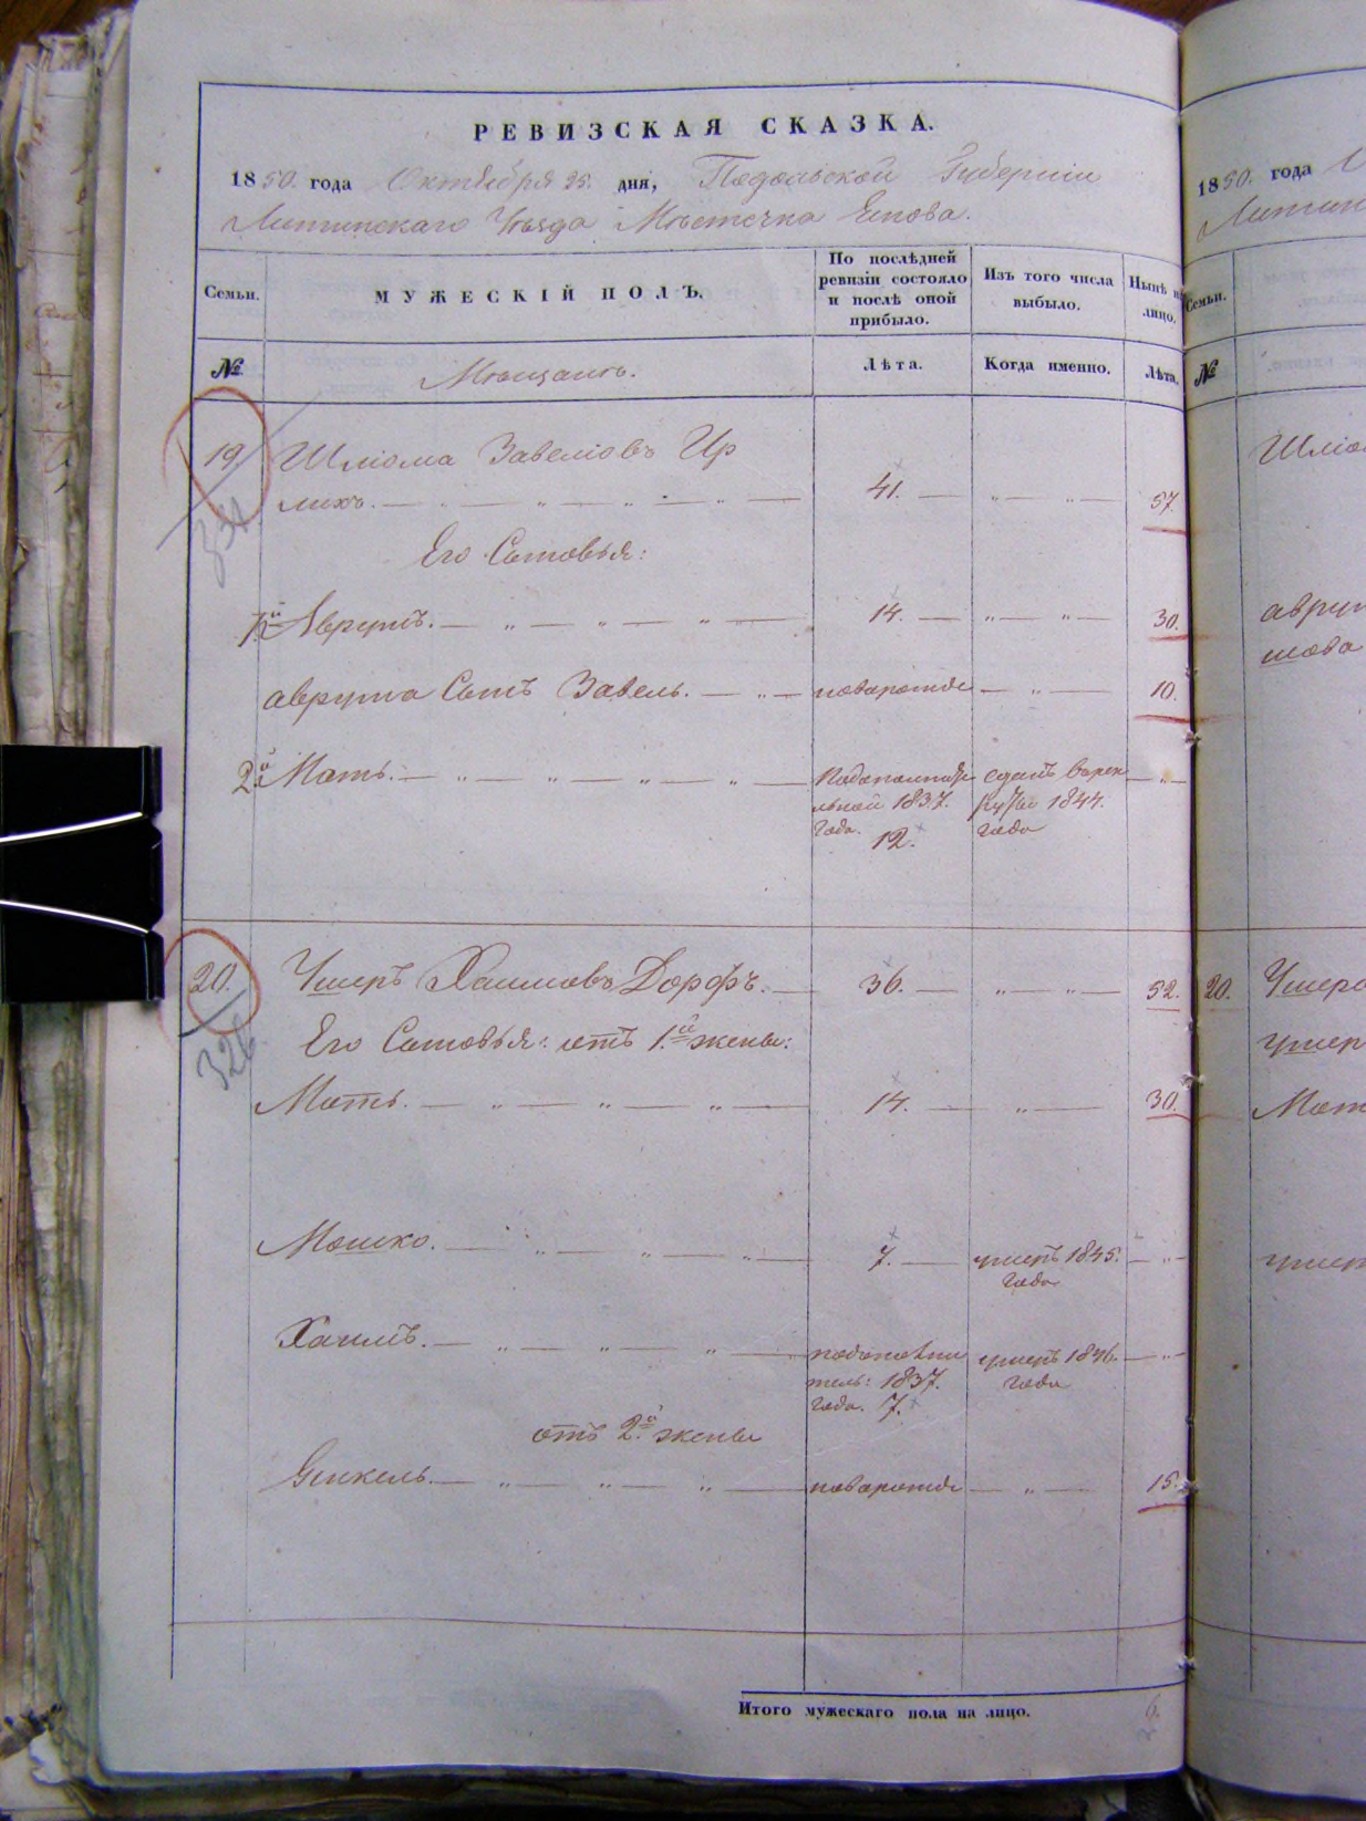 РЕВИЗСКАЯ СКАЗКА.
1850. года Октября 25. дня, Подольской Губерніи
Литинскаго Уѣзда Мѣстечка
Семьи.
МУЖЕСКІЙ ПОЛЪ.
По послѣдней ревизіи состояло и послѣ оной прибыло.
Изъ того числа выбыло.
Нынѣ на лицо.
№
Мѣщанъ.
Лѣта.
Когда именно.
Лѣта.
19. Шліома Завеліовъ Ир
лихъ. — „ — „ — „ — 41. — „ — „ — 57.
Его Сыновья:
1й Аврумъ. — „ — „ — „ — 14. — „ — „ — 30.
аврума Сынъ Завель. — „ — новорожде — „ — 10.
2.й Мать. — „ — „ — „ — „ — По дополните сданъ в рек — „ —
льной 1837. руты 1844.
года. 12. года
20. Ушеръ Хаимовъ Дорфъ. — 36. — „ — „ — 52.
326
Его Сыновья: отъ 1.й жены:
Мать. — „ — „ — „ — 14. — „ — 30.
Мошко. — „ — „ — „ — 7. — умеръ 1845. — „ —
года
Хаимъ. — „ — „ — „ — по дополни умеръ 1846. — „ —
тель: 1837. года
года. 7.
отъ 2.й жены
Генкель. — „ — „ — „ — новорожде — „ — 15.
Итого мужескаго пола на лицо. 6.
1850. года
Семьи.
№
20.